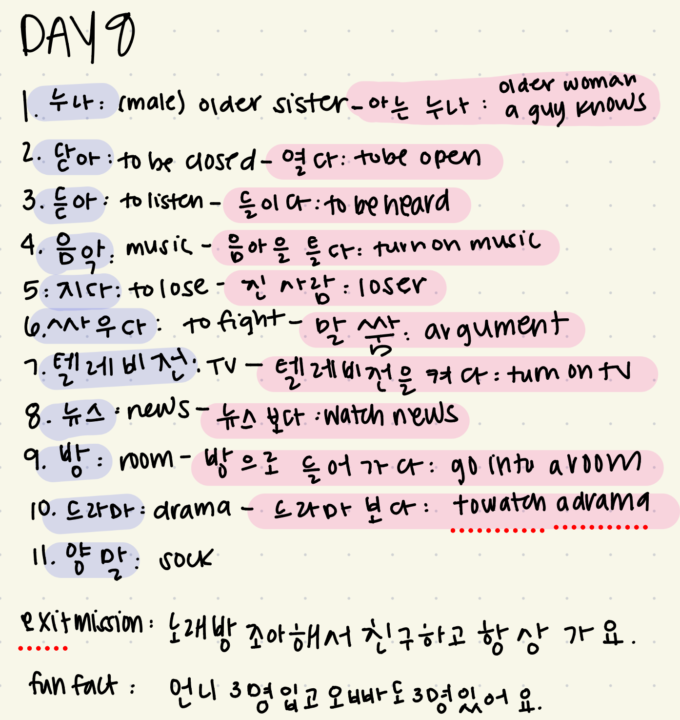 DAY 8
1. 누나: (male) older sister - 아는 누나: older woman a guy knows
2. 닫아: to be closed - 열다: to be open
3. 듣아: to listen - 들이다: to be heard
4. 음악: music - 음아을 틀다: turn on music
5: 지다: to lose - 진 사람: loser
6. 싸우다: to fight - 말 싸움: argument
7. 텔레비전: TV - 텔레비전을 켜다: turn on tv
8. 뉴스: news - 뉴스 보다: watch news
9. 방: room - 방으로 들어가다: go into a room
10. 드라마: drama - 드라마 보다: to watch a drama
11. 양말: sock
exit mission: 노래방 조아해서 친구하고 항상 가요.
fun fact: 언니 3명 입고 오빠도 3명 있어요.